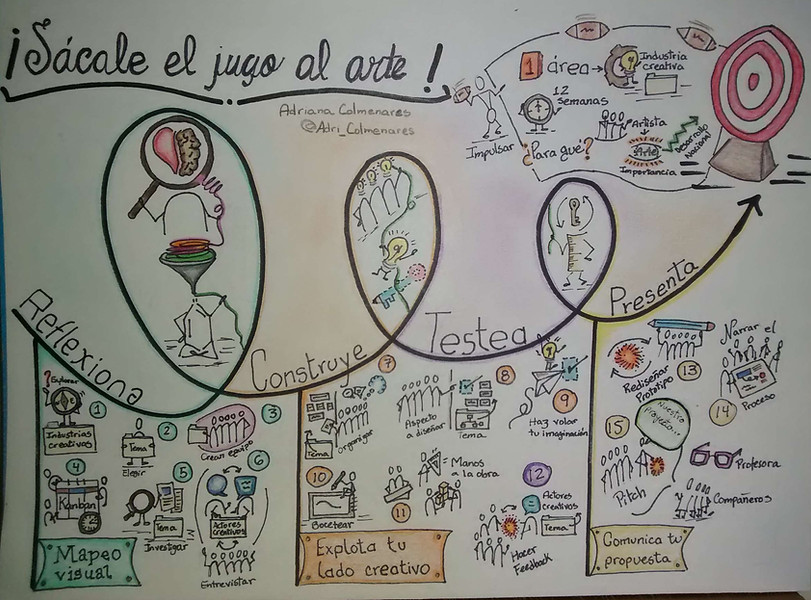 ¡Sácale el jugo al arte!
Adriana Colmenares
@Adri_Colmenares
Impulsar
1 área
Industria
creativa
12
semanas
¿Para qué?
Artista
Arte
Importancia
Desarrollo
Nacional
Reflexiona
Construye
Testea
Presenta
? Explorar
1
Industrias
creativas
2
Tema
Elegir
3
Crear equipo
4
Kanban
5
Tema
Investigar
6
Actores
creativos
Entrevistar
Mapeo
visual
7
Tema
Organizar
8
Aspecto
a diseñar
Tema
9
Haz volar
tu imaginación
10
Bocetear
11
Manos
a la obra
12
Actores
creativos
Tema
Hacer
Feedback
Explota tu
lado creativo
13
Rediseñar
Prototipo
14
Narrar el
Proceso
15
Nuestro
proyecto...
Pitch
Profesora
Compañeros
Comunica tu
propuesta